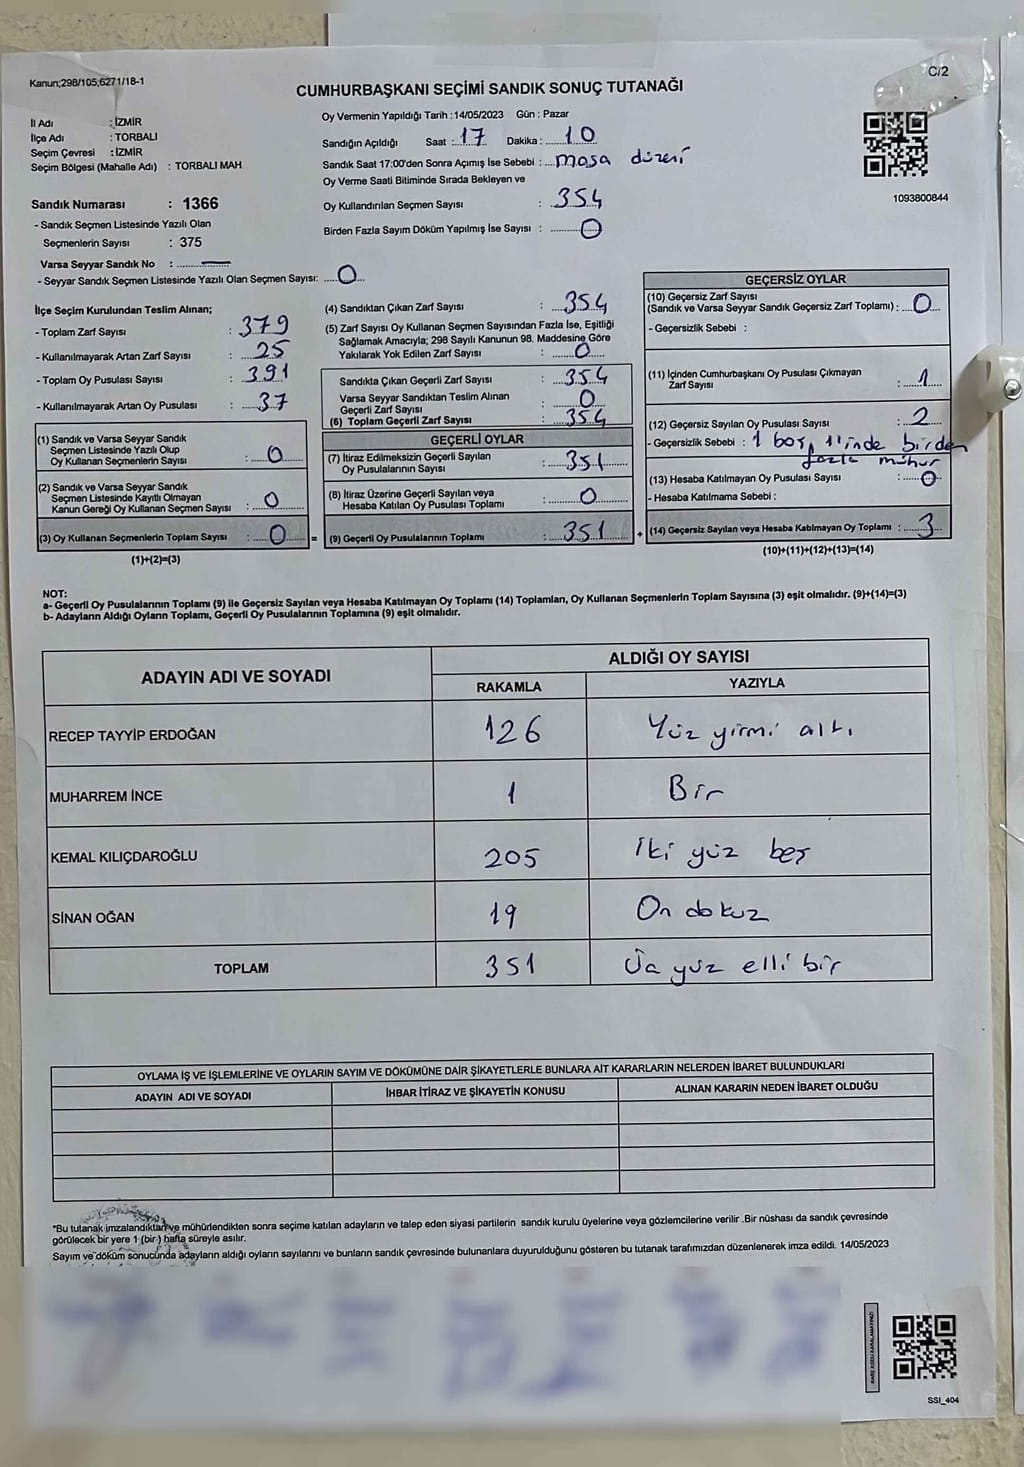 Kanun;298/105;6271/18-1
C/2
CUMHURBAŞKANI SEÇİMİ SANDIK SONUÇ TUTANAĞI
İl Adı : İZMİR
İlçe Adı : TORBALI
Seçim Çevresi : İZMİR
Seçim Bölgesi (Mahalle Adı) : TORBALI MAH.
Sandık Numarası : 1366
- Sandık Seçmen Listesinde Yazılı Olan
Seçmenlerin Sayısı : 375
Varsa Seyyar Sandık No : —
- Seyyar Sandık Seçmen Listesinde Yazılı Olan Seçmen Sayısı: 0
Oy Vermenin Yapıldığı Tarih : 14/05/2023 Gün : Pazar
Sandığın Açıldığı Saat : 17 Dakika : 10
Sandık Saat 17:00'den Sonra Açımış İse Sebebi : masa düzeni
Oy Verme Saati Bitiminde Sırada Bekleyen ve
Oy Kullandırılan Seçmen Sayısı : 354
Birden Fazla Sayım Döküm Yapılmış İse Sayısı : 0
1093800844
İlçe Seçim Kurulundan Teslim Alınan;
- Toplam Zarf Sayısı : 379
- Kullanılmayarak Artan Zarf Sayısı : 25
- Toplam Oy Pusulası Sayısı : 391
- Kullanılmayarak Artan Oy Pusulası : 37
(1) Sandık ve Varsa Seyyar Sandık
Seçmen Listesinde Yazılı Olup
Oy Kullanan Seçmenlerin Sayısı : 0
(2) Sandık ve Varsa Seyyar Sandık
Seçmen Listesinde Kayıtlı Olmayan
Kanun Gereği Oy Kullanan Seçmen Sayısı : 0
(3) Oy Kullanan Seçmenlerin Toplam Sayısı : 0 =
(1)+(2)=(3)
(4) Sandıktan Çıkan Zarf Sayısı : 354
(5) Zarf Sayısı Oy Kullanan Seçmen Sayısından Fazla İse, Eşitliği
Sağlamak Amacıyla; 298 Sayılı Kanunun 98. Maddesine Göre
Yakılarak Yok Edilen Zarf Sayısı : 0
Sandıkta Çıkan Geçerli Zarf Sayısı : 354
Varsa Seyyar Sandıktan Teslim Alınan
Geçerli Zarf Sayısı : 0
(6) Toplam Geçerli Zarf Sayısı : 354
GEÇERLİ OYLAR
(7) İtiraz Edilmeksizin Geçerli Sayılan
Oy Pusulalarının Sayısı : 351
(8) İtiraz Üzerine Geçerli Sayılan veya
Hesaba Katılan Oy Pusulası Toplamı : 0
(9) Geçerli Oy Pusulalarının Toplamı : 351 +
GEÇERSİZ OYLAR
(10) Geçersiz Zarf Sayısı
(Sandık ve Varsa Seyyar Sandık Geçersiz Zarf Toplamı) : 0
- Geçersizlik Sebebi :
(11) İçinden Cumhurbaşkanı Oy Pusulası Çıkmayan
Zarf Sayısı : 1
(12) Geçersiz Sayılan Oy Pusulası Sayısı : 2
- Geçersizlik Sebebi : 1 boş, 1'inde birden
fazla mühür
(13) Hesaba Katılmayan Oy Pusulası Sayısı : 0
- Hesaba Katılmama Sebebi :
(14) Geçersiz Sayılan veya Hesaba Katılmayan Oy Toplamı : 3
(10)+(11)+(12)+(13)=(14)
NOT:
a- Geçerli Oy Pusulalarının Toplamı (9) ile Geçersiz Sayılan veya Hesaba Katılmayan Oy Toplamı (14) Toplamları, Oy Kullanan Seçmenlerin Toplam Sayısına (3) eşit olmalıdır. (9)+(14)=(3)
b- Adayların Aldığı Oyların Toplamı, Geçerli Oy Pusulalarının Toplamına (9) eşit olmalıdır.
ADAYIN ADI VE SOYADI
ALDIĞI OY SAYISI
RAKAMLA YAZIYLA
RECEP TAYYİP ERDOĞAN 126 Yüz yirmi altı
MUHARREM İNCE 1 Bir
KEMAL KILIÇDAROĞLU 205 İki yüz beş
SİNAN OĞAN 19 On dokuz
TOPLAM 351 Üç yüz elli bir
OYLAMA İŞ VE İŞLEMLERİNE VE OYLARIN SAYIM VE DÖKÜMÜNE DAİR ŞİKAYETLERLE BUNLARA AİT KARARLARIN NELERDEN İBARET BULUNDUKLARI
ADAYIN ADI VE SOYADI İHBAR İTİRAZ VE ŞİKAYETİN KONUSU ALINAN KARARIN NEDEN İBARET OLDUĞU
"Bu tutanak imzalandıktan ve mühürlendikten sonra seçime katılan adayların ve talep eden siyasi partilerin sandık kurulu üyelerine veya gözlemcilerine verilir .Bir nüshası da sandık çevresinde
görülecek bir yere 1 (bir ) hafta süreyle asılır.
Sayım ve döküm sonucunda adayların aldığı oyların sayılarını ve bunların sandık çevresinde bulunanlara duyurulduğunu gösteren bu tutanak tarafımızdan düzenlenerek imza edildi. 14/05/2023
KARE KODU KARALAMAYINIZ!
SSI_404